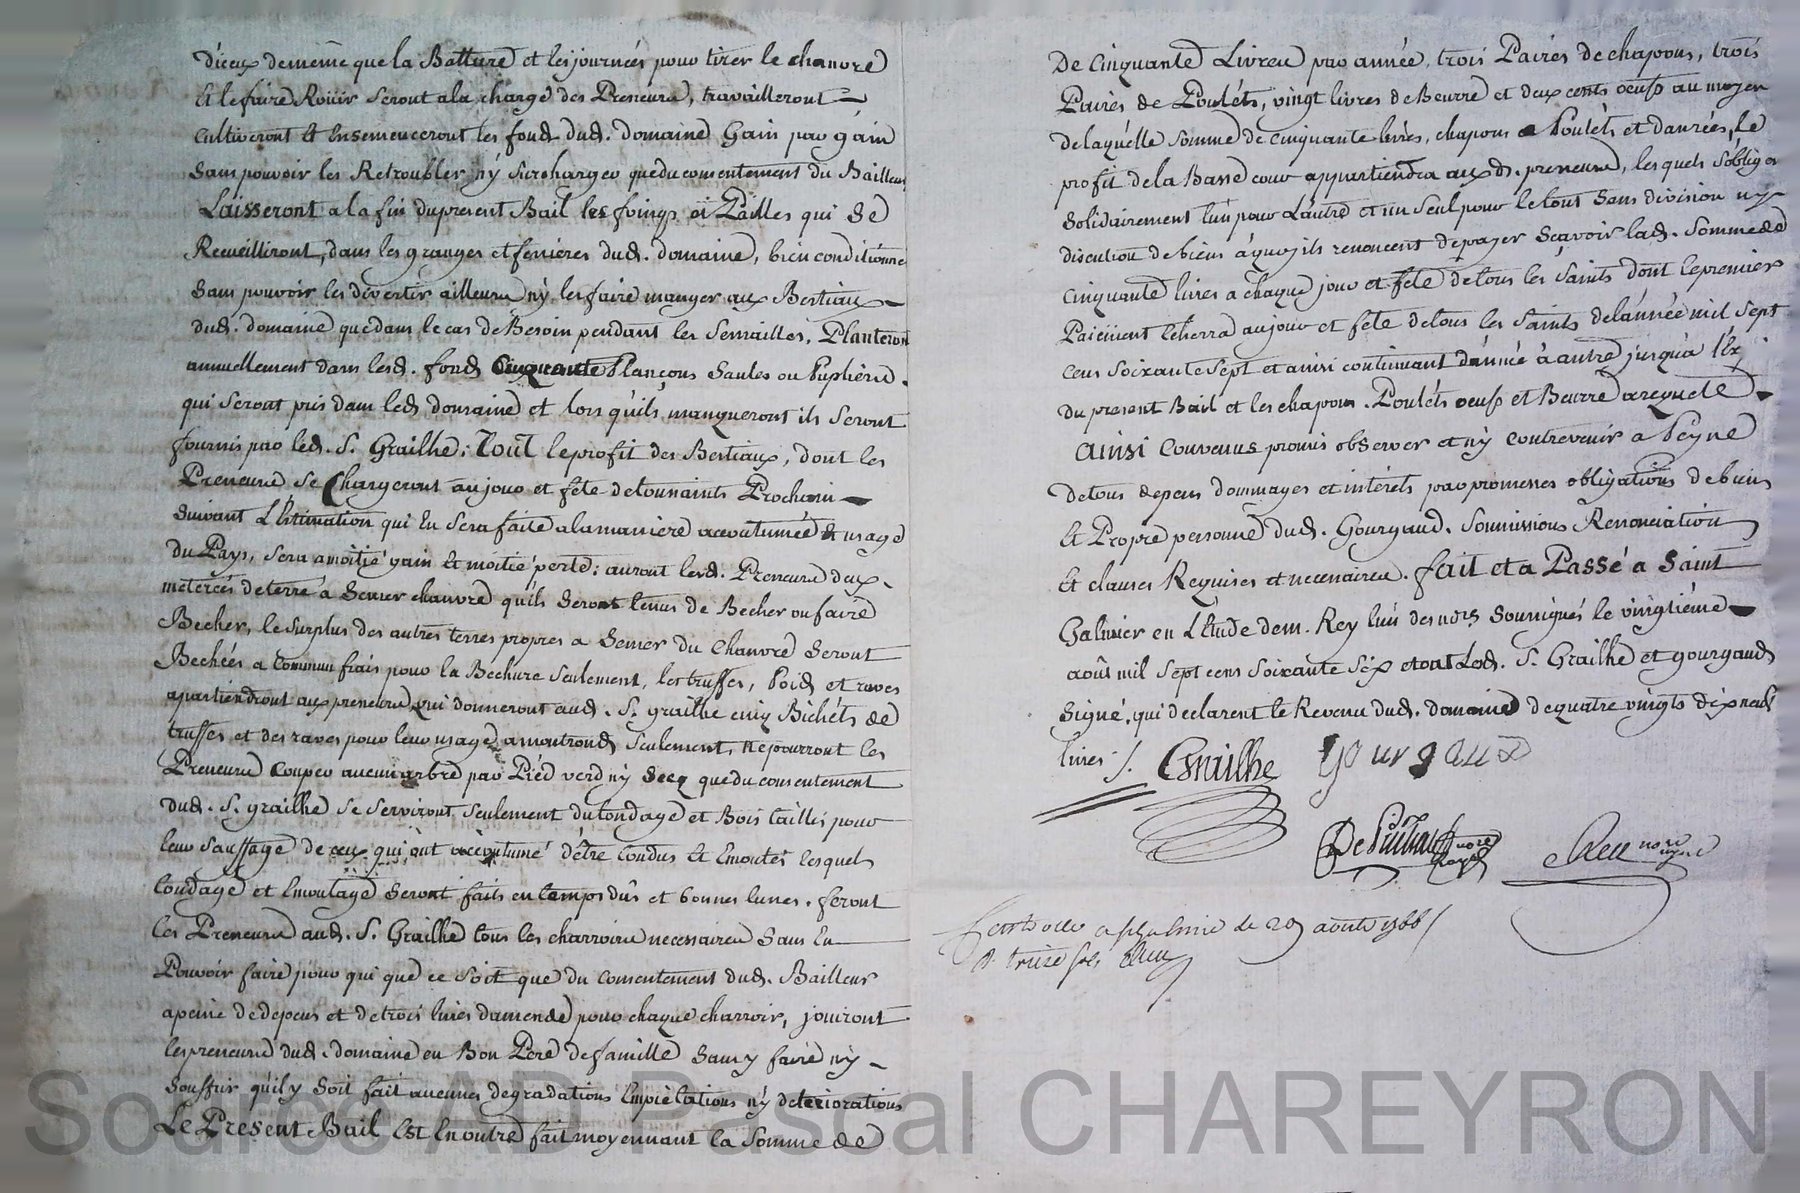 d'iceux de même que la Batture et les journées pour tirer le chanvre
Et le faire Roüir seront a la charge des Preneurs, travailleront
Cultiveront Et Ensemenceront les fonds dud. domaine Gain par gain
Sans pouvoir les Retroubler ny surcharger que du consentement du Bailleur
Laisseront a la fin du present Bail les foings et Pailles qui se
Recueilliront, dans les granges et fenieres dud. domaine, bien conditionné
Sans pouvoir les divertir ailleurs ny les faire manger aux Bestiaux
dud. domaine que dans le cas de Besoin pendant les semailles, Planteront
annuellement dans lesd. fonds Cinquante Plançons Saules ou Puplieres
qui seront pris dans led. domaine et lors qu'ils manqueront ils seront
fournis par led. S. Grailhe; Tout le profit des Bestiaux, dont les
Preneurs se Chargeront au jour et fete de toussaints Prochain
Suivant L'Estimation qui En sera faite a la maniere accoutumée et usage
du Pays, sera a moitié gain Et moitié perte; auront lesd. Preneurs deux
meterées de terre a semer chanvre qu'ils seront tenus de Becher ou faire
Becher, le surplus des autres terres propres a semer du Chanvre seront
Bechées a Commun frais pour la Bechure seulement, les truffes, Pois et raves
apartiendront aux preneurs qui donneront aud. S. grailhe cinq Bichets de
truffes et des raves pour leur usage a montrond seulement, ne pourront les
Preneurs Couper aucun arbre par Pied verd ny secq que du consentement
dud. S. grailhe se serviront seulement du tondage et Bois taillis pour
leur Sauffage de ceux qui ont accoutumé d'être tondus Et Emontés lesquels
tondage et Emontage seront faits en temps dûs et bonnes lunes. feront
les Preneurs aud. S. Grailhe tous les charroirs necessaires sans En
Pouvoir faire pour qui que ce soit que du consentement dud. Bailleur
a peine de depens et de trois livres d'amende pour chaque charroir, jouiront
les preneurs dud. domaine en Bon Pere de famille sans y faire ny
souffrir qu'il y soit fait aucunes degradations Empietations ny deteriorations
Le Present Bail Est En outre fait moyennant la somme de
De Cinquante Livres par année, trois Paires de chapons, trois
Paires de Poulets, vingt livres de Beurre et deux cents oeufs au moyen
de laquelle somme de cinquante livres, chapons Poulets et danrées, le
profit de la Basse cour appartiendra auxd. preneurs, lesquels s'obligent
Solidairement l'un pour L'autre et un seul pour le tout sans division ny
discution de biens a quoy ils renoncent de payer sçavoir lad. somme de
Cinquante livres a chaque jour et fete de tous les Saints dont le premier
Paiement Echerra au jour et fete de tous les Saints de l'année mil sept
cens soixante sept et ainsi continuant d'année à autre jusqu'a l'Ex
du present Bail et les chapons. Poulets oeufs et Beurre a requete
Ainsi Convenus promis observer et n'y contrevenir a Peyne
de tous depens dommages et interets par promesses obligations de biens
Et Propre personne dud. Gourgaud. soumissions Renonciation
Et clauses Requises et necessaires. fait et a Passé a Saint
Galmier en L'Etude de m. Rey l'un des nores soussignés le vingtiéme
août mil sept cens soixante six et ont Lesd. S. Grailhe et gourgaud
Signé, qui declarent le Revenu dud. domaine de quatre vingts dix neuf
livres /.
Grailhe
gourgaud
nore
Royal
nore
Royal
août 1766
Source AD Pascal CHAREYRON